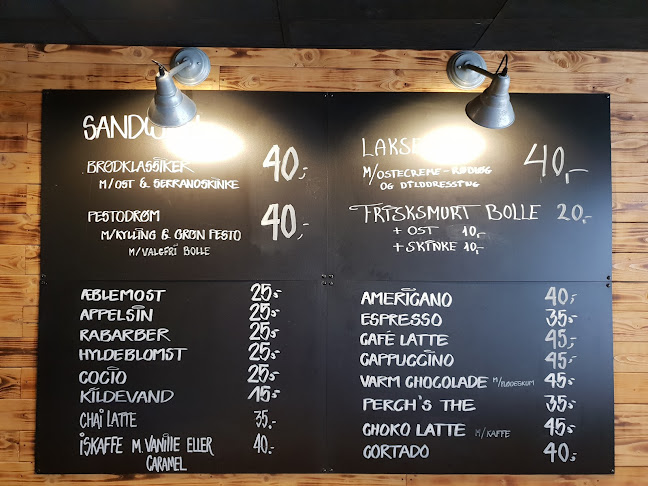 BRØDKLASSIKER 40,-
M/OST & SERRANOSKINKE
PESTODRØM 40,-
M/KYLLING & GRØN PESTO
M/VALGFRI BOLLE
40,-
M/OSTECREME - RØDLØG
OG DILDDRESSING
FRISKSMURT BOLLE 20,-
+ OST 10,-
+ SKINKE 10,-
ÆBLEMOST 25,-
APPELSIN 25,-
RABARBER 25,-
HYLDEBLOMST 25,-
COCIO 25,-
KILDEVAND 15,-
CHAI LATTE 35,-
ISKAFFE M. VANILIE ELLER 40,-
CARAMEL
AMERICANO 40,-
ESPRESSO 35,-
CAFÈ LATTE 45,-
CAPPUCCINO 45,-
VARM CHOCOLADE M/FLØDESKUM 45,-
PERCH'S THE 35,-
CHOKO LATTE M/KAFFE 45,-
CORTADO 40,-